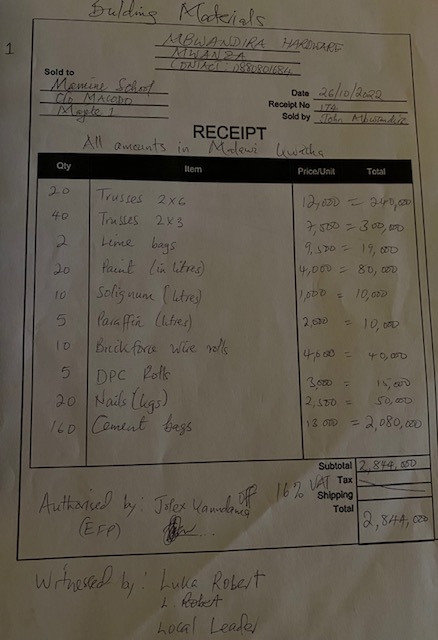 Building Materials
1
MBWANDIRA HARDWARE
MWANZA
CONTACT: 0880801684
Sold to
School
C/O
Date 26/10/2022
Receipt No 174
Sold by John Mbwandira
RECEIPT
All amounts in Malawi Kwacha
Qty Item Price/Unit Total
20 Trusses 2x6 12,000 = 240,000
40 Trusses 2x3 7,500 = 300,000
2 Lime bags 9,500 = 19,000
20 Paint (in litres) 4,000 = 80,000
10 Solignum (litres) 1,000 = 10,000
5 Paraffin (litres) 2,000 = 10,000
10 Brickforce wire rolls 4,000 = 40,000
5 DPC Rolls 3,000 = 15,000
20 Nails (kgs) 2,500 = 50,000
160 Cement bags 13,000 = 2,080,000
Subtotal 2,844,000
off 16% VAT Tax
Shipping
Total 2,844,000
Authorised by:
(EFP)
Witnessed by: Luka Robert
L Robert
Local Leader